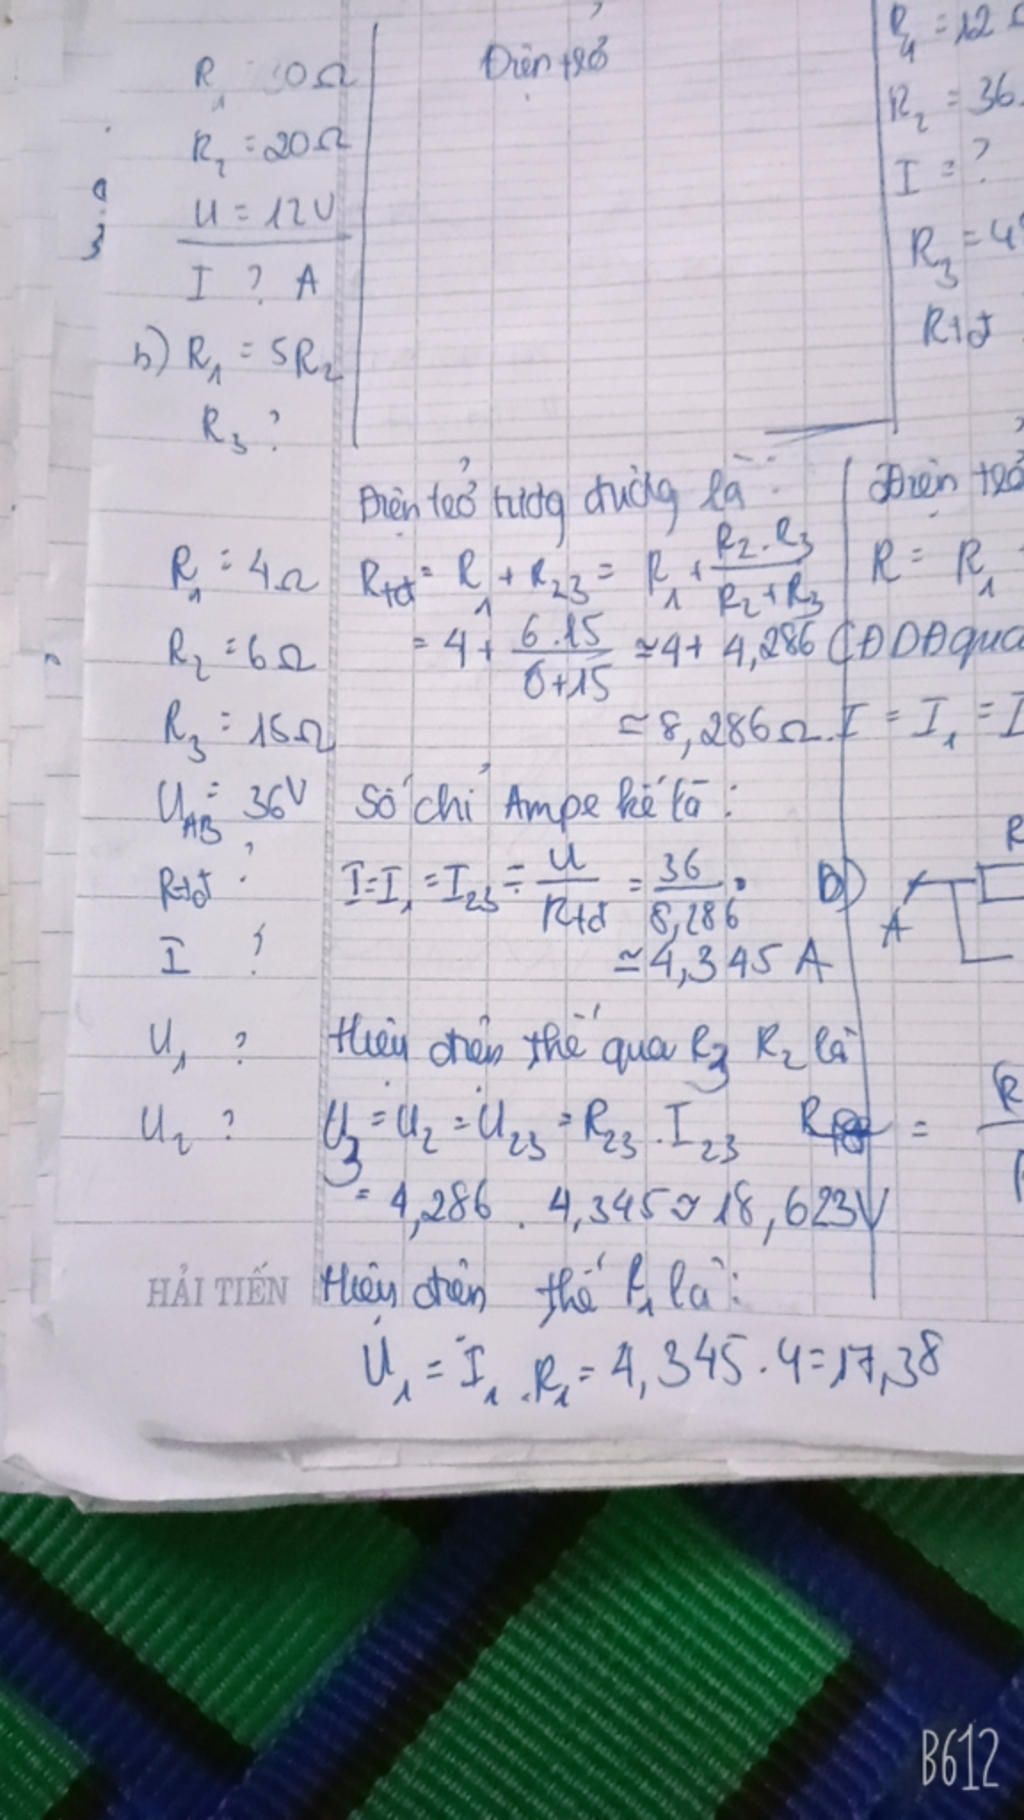 R₁ = 30Ω
R₂ = 20Ω
U = 12V
I ? A
b) R₁ = 5R₂
R₃ ?
Điện trở
R₄ = 12
R₂ = 36
I = ?
R₃ = 4
Rtđ
R₁ = 4Ω
R₂ = 6Ω
R₃ = 15Ω
U_AB = 36V
Rtđ ?
I ?
U₁ ?
U₂ ?
Điện trở tương đương là :
Rtđ = R₁ + R₂₃ = R₁ + (R₂.R₃)/(R₂+R₃)
= 4 + (6.15)/(6+15) ≃ 4 + 4,286
≃ 8,286Ω.
Số chỉ Ampe kế là :
I = I₁ = I₂₃ = U/Rtđ = 36/8,286
≃ 4,345 A
Hiệu điện thế qua R₃ R₂ là
U₃ = U₂ = U₂₃ = R₂₃ . I₂₃
= 4,286 . 4,345 ≃ 18,623V
Hiệu điện thế R₁ là :
U₁ = I₁ . R₁ = 4,345 . 4 = 17,38
Điện trở
R = R₁
CĐDĐ qua
I = I₁ = I
B)
R
A
=
R
HẢI TIẾN
B612